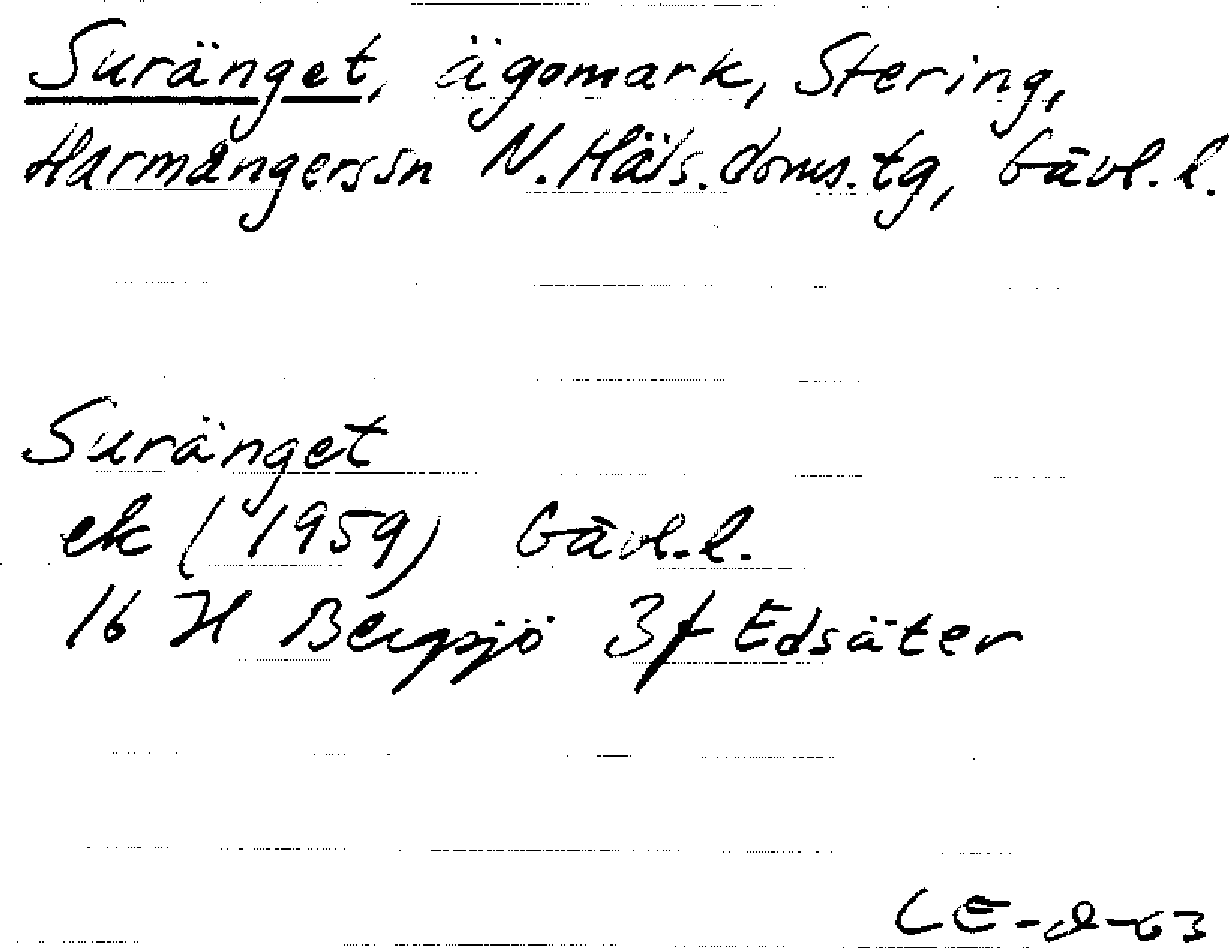 Suränget, ägomark, Stering,
Harmångerssn N. Häls. doms. tg, Gävl. l.
Suränget
ek (1959) Gävl. l.
16 H Bergsjö 3f Edsäter
CE-d-63